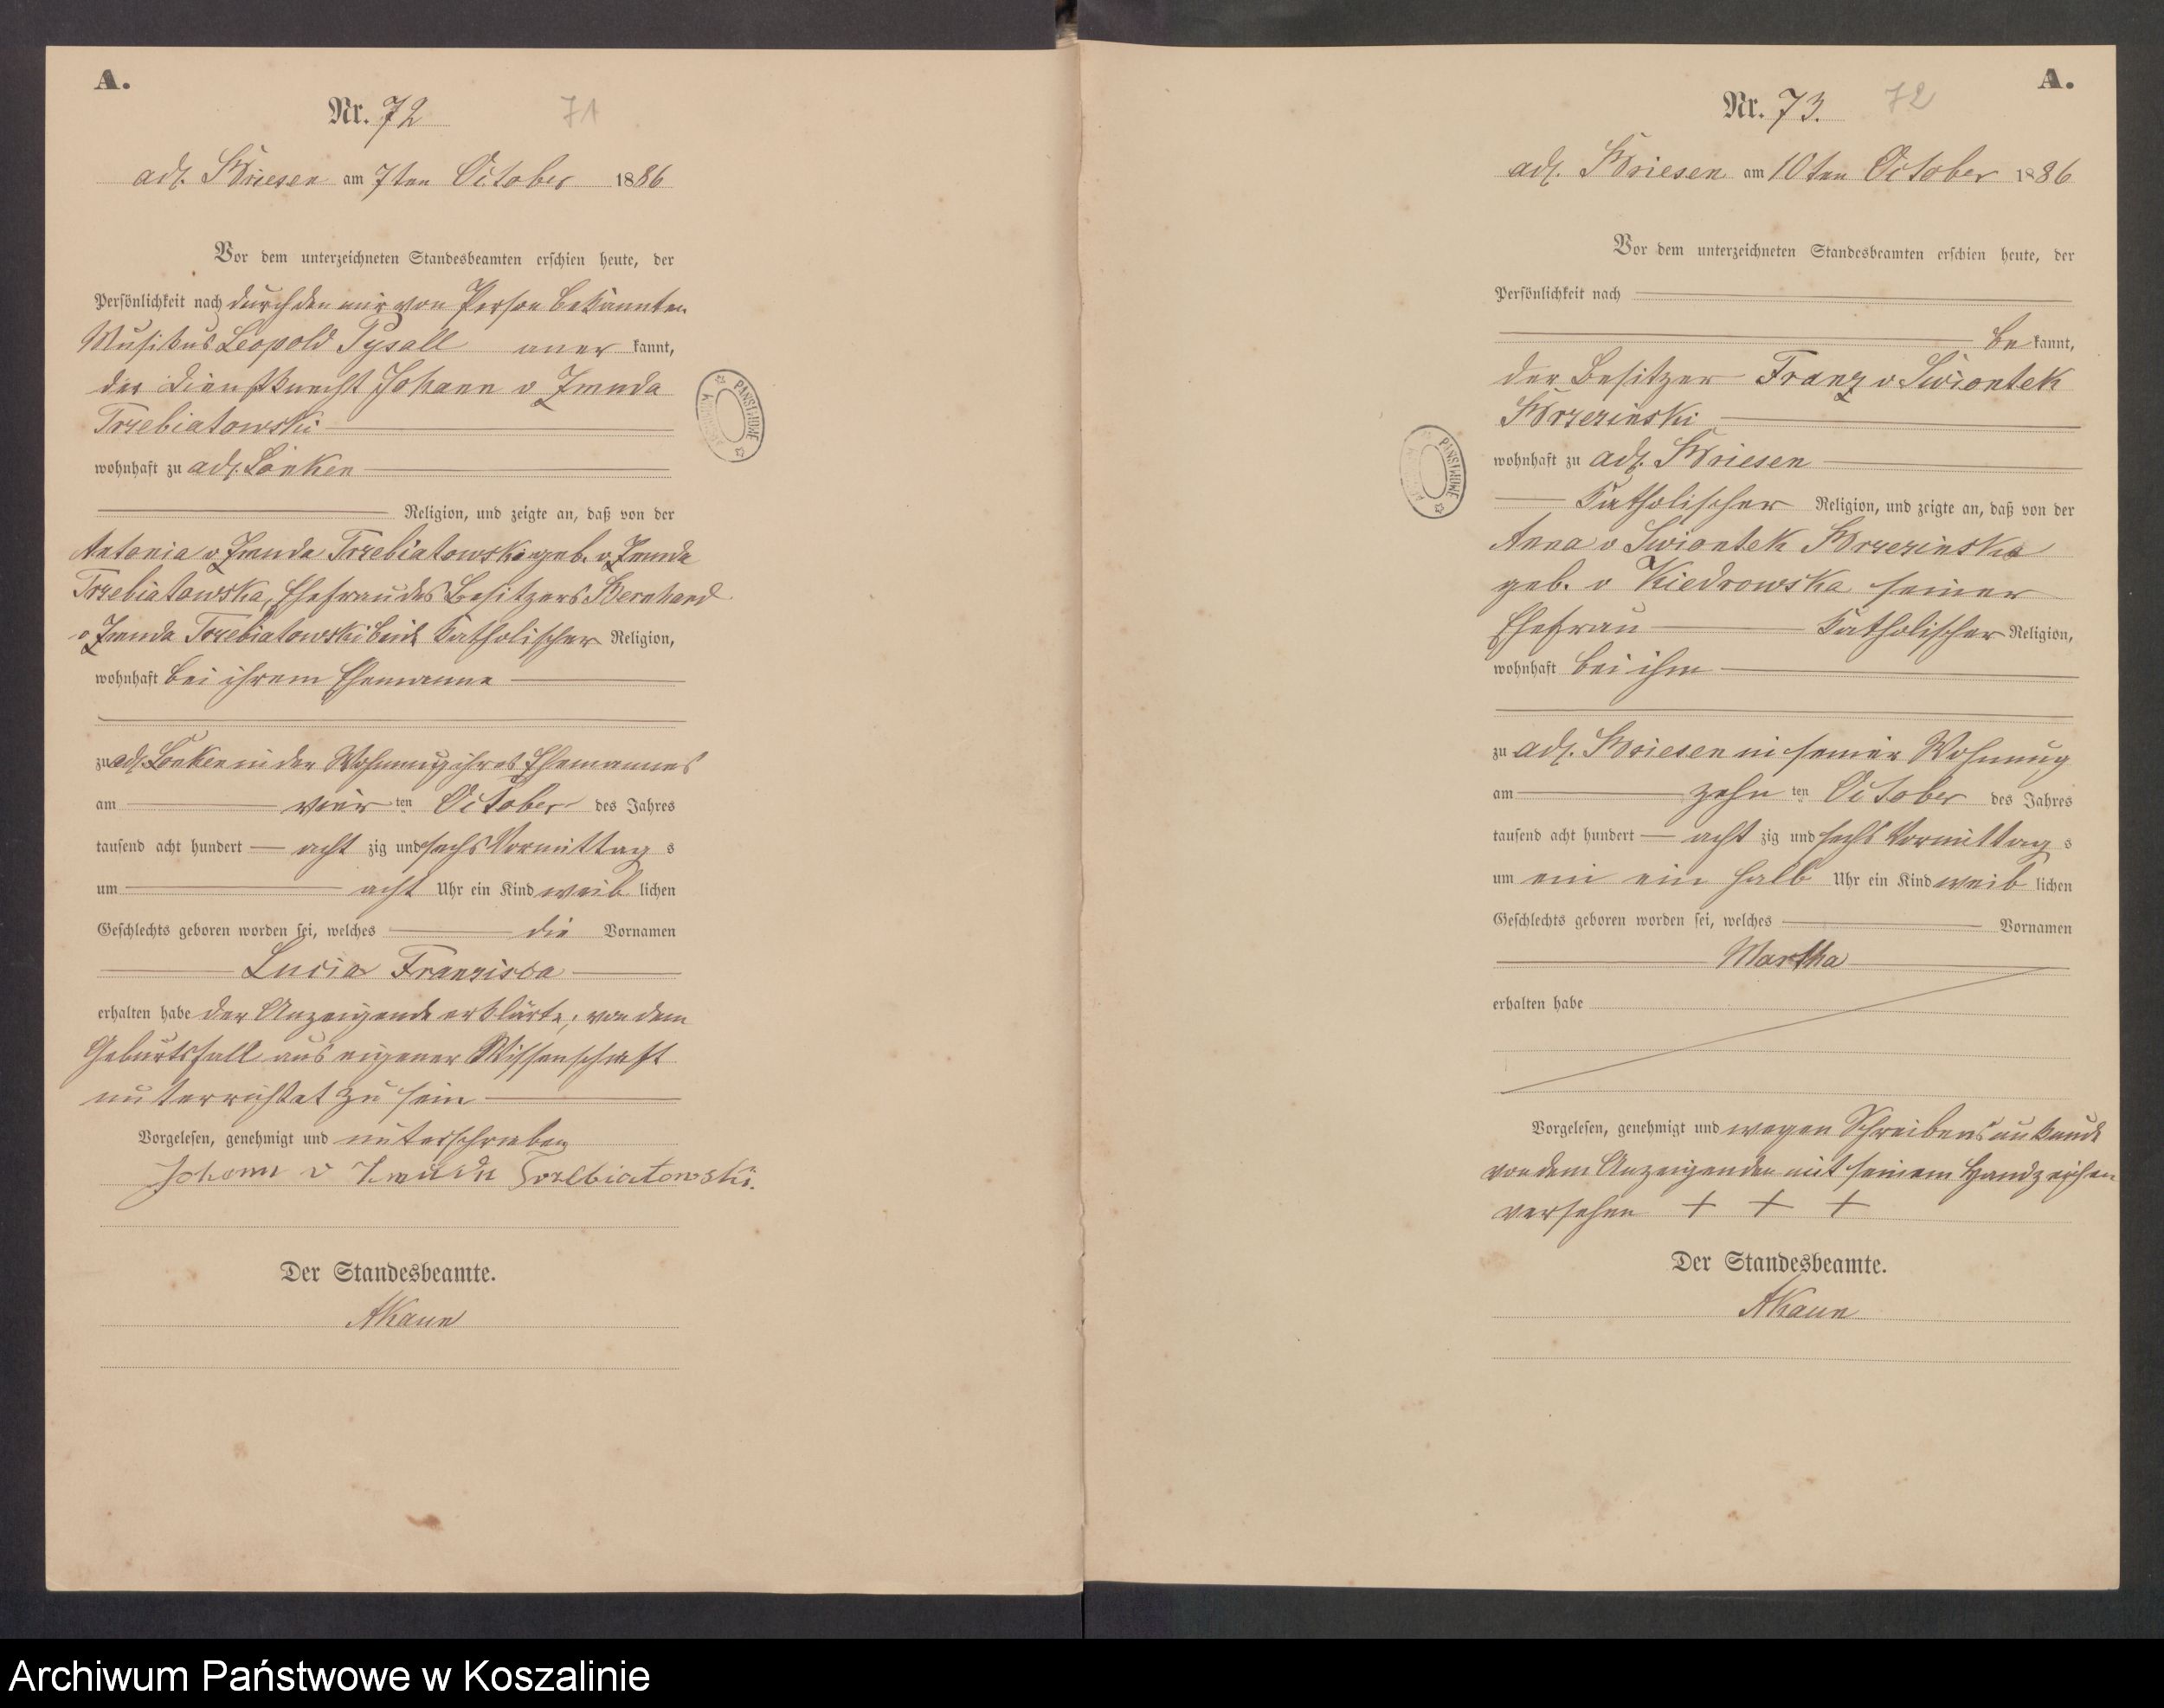 A.
Nr. 72
71
adl. Briesen am 7ten October 1886
Vor dem unterzeichneten Standesbeamten erschien heute, der
Persönlichkeit nach durch den mir von Person bekannten
Musikus Leopold Pysall anerkannt,
der Dienstknecht Johann v Zmuda
Trzebiatowski
wohnhaft zu adl. Lonken
Religion, und zeigte an, daß von der
Antonia v Zmuda Trzebiatowska geb. v Zmuda
Trzebiatowska, Ehefrau des Besitzers Bernhard
v Zmuda Trzebiatowski beide katholischer Religion,
wohnhaft bei ihrem Ehemanne
zu adl. Lonken in der Wohnung ihres Ehemannes
am vier ten October des Jahres
tausend acht hundert acht zig und sechs Vormittag s
um acht Uhr ein Kind weib lichen
Geschlechts geboren worden sei, welches die Vornamen
Lucia Franzisca
erhalten habe der Anzeigende erklärte, von dem
Geburtsfall aus eigener Wissenschaft
unterrichtet zu sein
Vorgelesen, genehmigt und unterschrieben
Johann v Zmuda Trzebiatowski.
Der Standesbeamte.
AKaun
PAŃSTWOWE
A.
Nr. 73.
72
adl. Briesen am 10ten October 1886
Vor dem unterzeichneten Standesbeamten erschien heute, der
Persönlichkeit nach
be kannt,
der Besitzer Franz v Swiontek
Brzezinski
wohnhaft zu adl. Briesen
katholischer Religion, und zeigte an, daß von der
Anna v Swiontek Brzezinska
geb. v Kiedrowska seiner
Ehefrau katholischer Religion,
wohnhaft bei ihm
zu adl. Briesen in seiner Wohnung
am zehn ten October des Jahres
tausend acht hundert acht zig und sechs Vormittag s
um ein ein halb Uhr ein Kind weib lichen
Geschlechts geboren worden sei, welches Vornamen
Martha
erhalten habe
Vorgelesen, genehmigt und wegen Schreibensunkunde
von dem Anzeigenden mit seinem Handzeichen
versehen + + +
Der Standesbeamte.
AKaun
PAŃSTWOWE
Archiwum Państwowe w Koszalinie